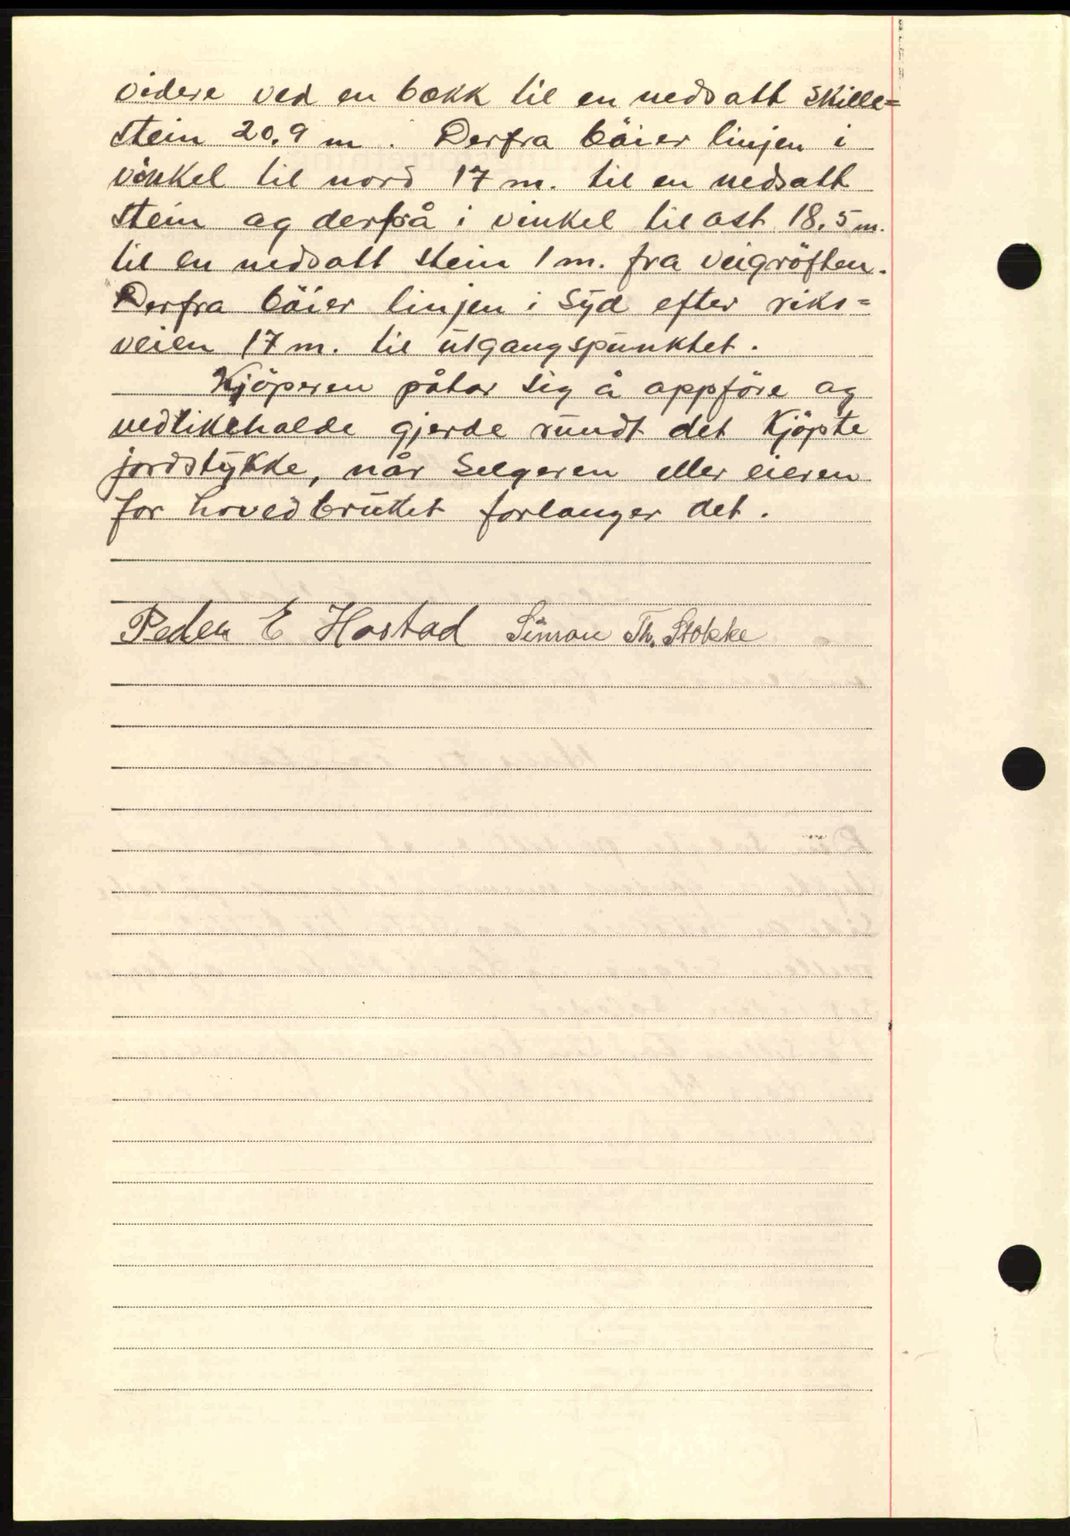 videre ved en bækk til en nedsatt skille=
stein 20.9 m. Derfra böier linjen i
vinkel til nord 17 m. til en nedsatt
stein og derfrå i vinkel til øst 18.5 m.
til en nedsatt stein 1 m. fra veigröften.
Derfra böier linjen i Syd efter riks=
veien 17 m. til utgangspunktet.
Kjöperen påtar sig å oppföre og
vedlikeholde gjerde rundt det kjöpte
jordstykke, når Selgeren eller eieren
for hovedbruket forlanger det.
Peder E Hostad Simon Th. Stokke